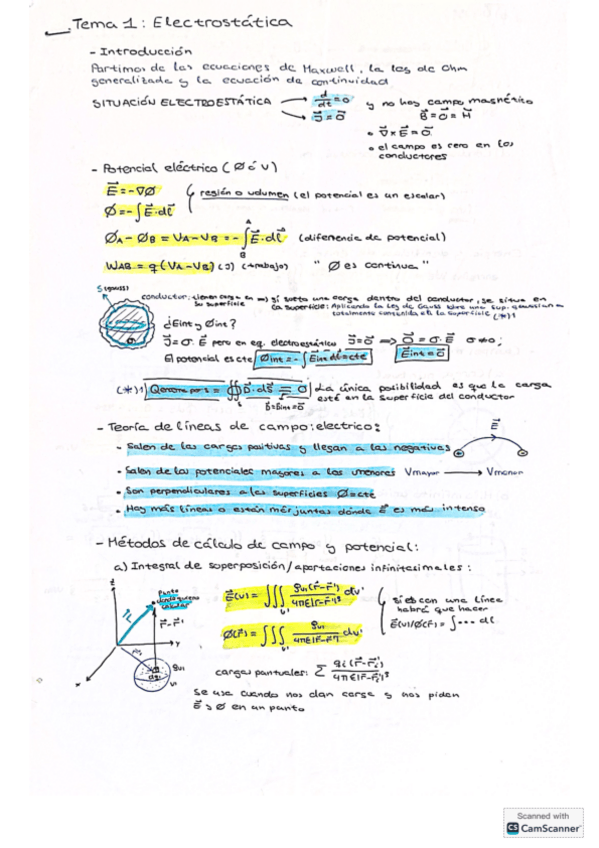 Tema 1: Electrostática
- Introducción
Partimos de las ecuaciones de Maxwell, la ley de Ohm
generalizada y la ecuación de continuidad
SITUACIÓN ELECTROESTÁTICA → d/dt = 0 y no hay campo magnético
→ J⃗ = 0⃗ B⃗ = 0⃗ = H⃗
• ∇ × E⃗ = 0⃗
• el campo es cero en los
conductores
- Potencial eléctrico (Ø ó V)
E⃗ = -∇Ø
región o volumen (el potencial es un escalar)
Ø = -∫E⃗·dl⃗
ØA - ØB = VA - VB = -∫_B^A E⃗·dl⃗ (diferencia de potencial)
WAB = q(VA - VB) (J) (trabajo) "Ø es continua"
S(gauss)
conductor: tienen carga en su superficie ⇒ si suelto una carga dentro del conductor, se situa en
la superficie: Aplicando la Ley de Gauss sobre una sup. gaussiana
totalmente contenida en la superficie (*)1
¿Eint y Øint?
J⃗ = σ·E⃗ pero en eq. electroestático J⃗ = 0⃗ ⇒ 0⃗ = σ·E⃗ σ≠0;
El potencial es cte Øint = -∫E⃗int dl⃗ = cte E⃗int = 0⃗
(*)1 Qencerr por s = ∯ D⃗·dS⃗ = 0 La única posibilidad es que la carga
está en la superficie del conductor
D⃗ = E⃗int = 0⃗
- Teoría de líneas de campo electrico:
E⃗
- Salen de las cargas positivas y llegan a las negativas
- Salen de los potenciales mayores a los menores Vmayor → Vmenor
- Son perpendiculares a las superficies Ø=cte
- Hay más líneas o están más juntas donde E⃗ es más intenso
- Métodos de cálculo de campo y potencial:
a) Integral de superposición/aportaciones infinitesimales:
z
punto
donde quiero
calcular
r⃗
r⃗-r⃗'
y
x
E⃗(r) = ∭_v' ρv(r⃗-r⃗')/4πε|r⃗-r⃗'|³ dv'
Si es con una línea
habrá que hacer
E⃗(r)/Ø(r⃗) = ∫ ··· dl
Ø(r⃗) = ∭_v' ρv/4πε|r⃗-r⃗'| dv'
cargas puntuales: Σ qi(r⃗-r⃗i')/4πε|r⃗-r⃗i'|³
Se usa cuando nos dan carga y nos piden
D⃗ o Ø en un punto
Scanned with
CS CamScanner